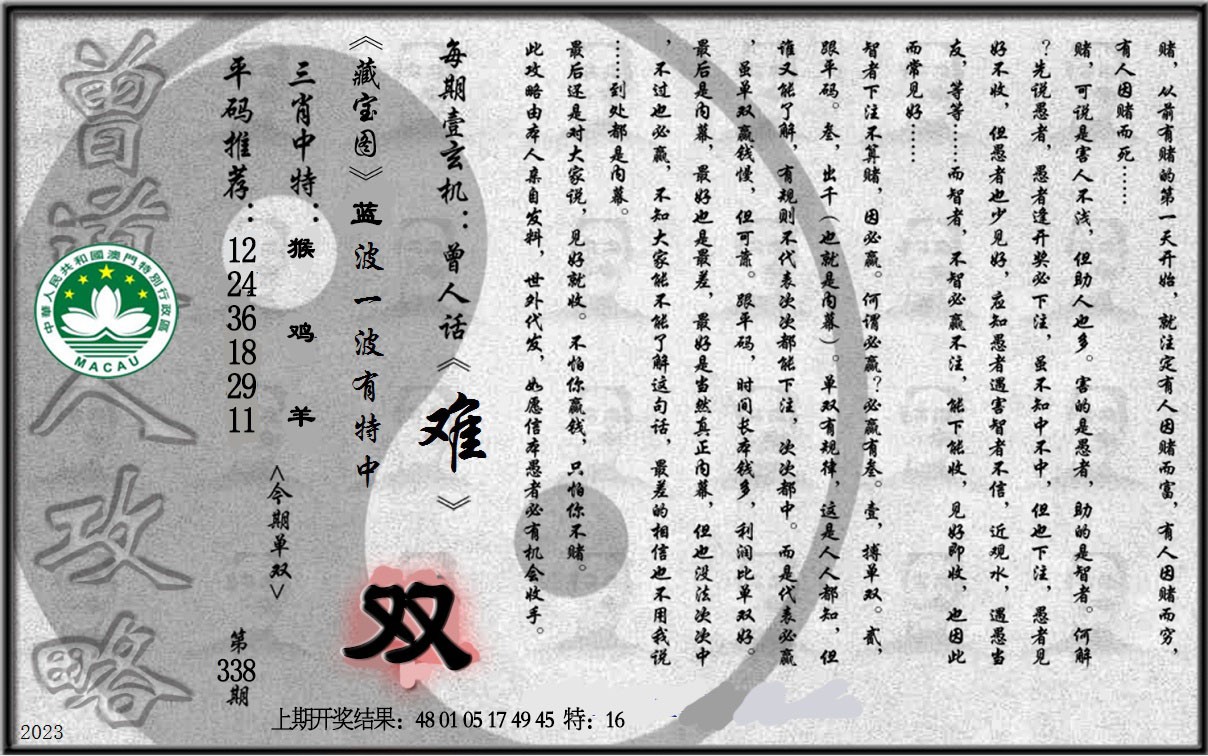 赌，从前有赌的第一天开始，就注定有人因赌而富，有人因赌而穷，
有人因赌而死……
赌，可说是害人不浅，但助人也多。害的是愚者，助的是智者。何解
？先说愚者，愚者逢开奖必下注，虽不知中不中，但也下注，愚者见
好不收，但愚者也少见好，应知愚者遇害智者不信，近观水，遇愚当
友，等等……而智者，不智必赢不注，能下能收，见好即收，也因此
而常见好……
智者下注不算赌，因必赢。何谓必赢？必赢有叁。壹，搏单双。贰，
跟平码。叁，出千（也就是内幕）。单双有规律，这是人人都知，但
谁又能了解，有规则不代表次次都能下注，次次都中。而是代表必赢
，虽单双赢钱慢，但可靠。跟平码，时间长本钱多，利润比单双好。
最后是内幕，最好也是最差，最好是当然真正内幕，但也没法次次中
，不过也必赢，不知大家能不能了解这句话，最差的相信也不用我说
……到处都是内幕。
最后还是对大家说，见好就收。不怕你赢钱，只怕你不赌。
此攻略由本人亲自发料，世外代发，如愿信本愚者必有机会收手。
每期壹玄机：曾人话《难》
《藏宝图》蓝波一波有特中
双
三肖中特：猴 鸡 羊
<今期单双>
平码推荐：12 24 36 18 29 11
第338期
曾道人攻略
中華人民共和國澳門特別行政區
MACAU
上期开奖结果：48 01 05 17 49 45 特：16
2023